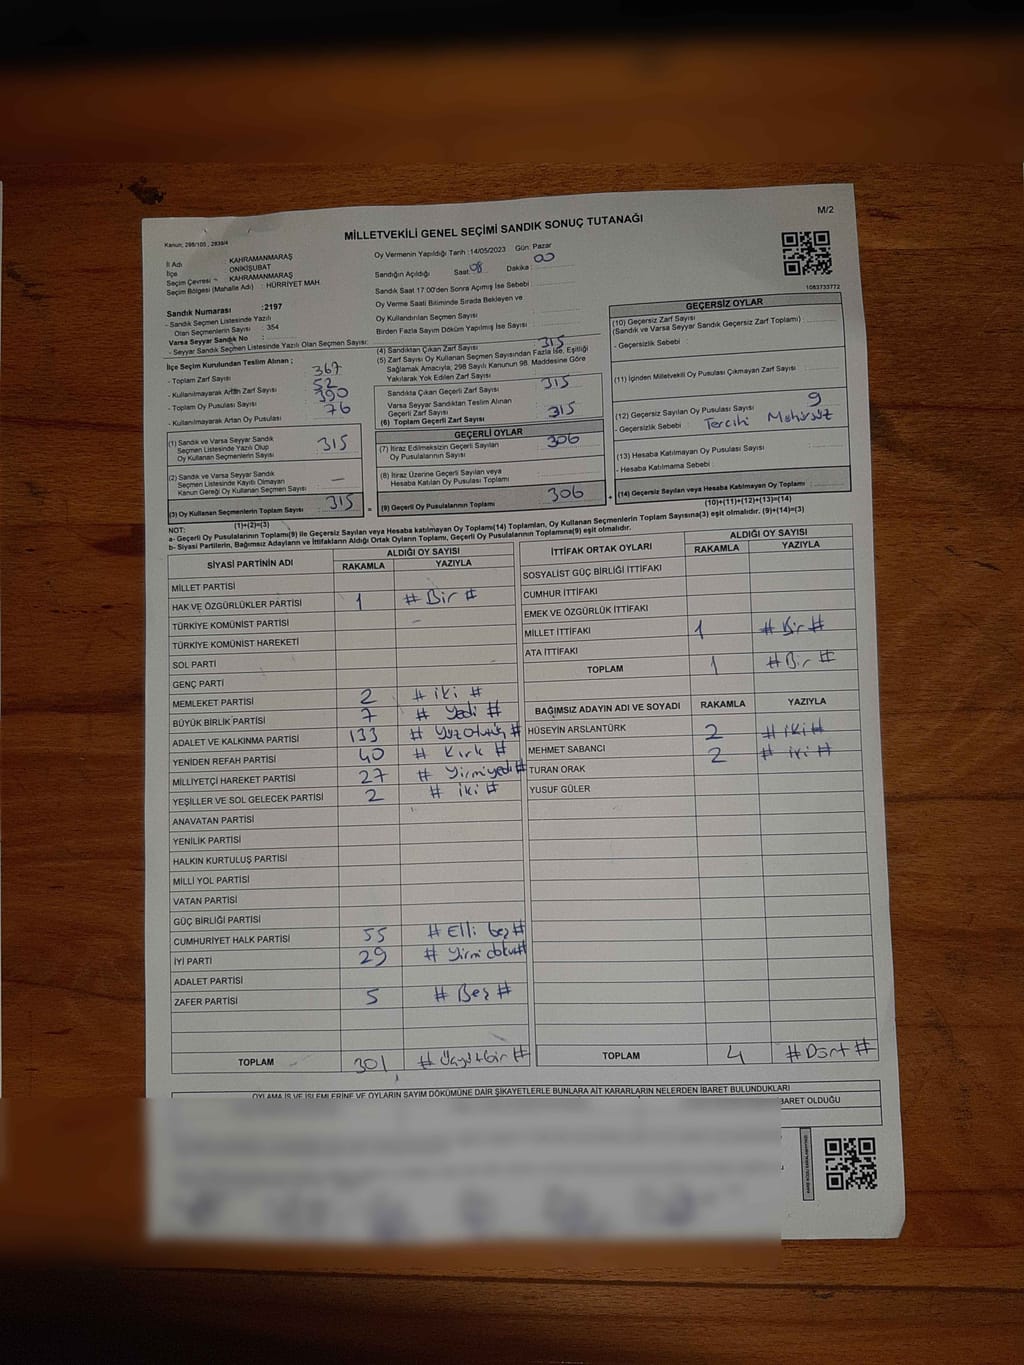 M/2
MİLLETVEKİLİ GENEL SEÇİMİ SANDIK SONUÇ TUTANAĞI
Kanun; 298/105 , 2839/4
İl Adı : KAHRAMANMARAŞ
İlçe : ONİKİŞUBAT
Seçim Çevresi : KAHRAMANMARAŞ
Seçim Bölgesi (Mahalle Adı) : HÜRRİYET MAH.
Sandık Numarası :2197
- Sandık Seçmen Listesinde Yazılı
Olan Seçmenlerin Sayısı : 354
Varsa Seyyar Sandık No :
- Seyyar Sandık Seçmen Listesinde Yazılı Olan Seçmen Sayısı:
Oy Vermenin Yapıldığı Tarih :14/05/2023 Gün: Pazar
Sandığın Açıldığı Saat: 08 Dakika : 00
Sandık Saat 17.00'den Sonra Açımış İse Sebebi :
Oy Verme Saati Bitiminde Sırada Bekleyen ve
Oy Kullandırılan Seçmen Sayısı :
Birden Fazla Sayım Döküm Yapılmış İse Sayısı :
1083733772
İlçe Seçim Kurulundan Teslim Alınan ;
- Toplam Zarf Sayısı : 367
- Kullanılmayarak Artan Zarf Sayısı : 52
- Toplam Oy Pusulası Sayısı : 390
- Kullanılmayarak Artan Oy Pusulası : 76
(1) Sandık ve Varsa Seyyar Sandık
Seçmen Listesinde Yazılı Olup
Oy Kullanan Seçmenlerin Sayısı : 315
(2) Sandık ve Varsa Seyyar Sandık
Seçmen Listesinde Kaydı Olmayan
Kanun Gereği Oy Kullanan Seçmen Sayısı : –
(3) Oy Kullanan Seçmenlerin Toplam Sayısı : 315
(1)+(2)=(3)
(4) Sandıktan Çıkan Zarf Sayısı : 315
(5) Zarf Sayısı Oy Kullanan Seçmen Sayısından Fazla İse, Eşitliği
Sağlamak Amacıyla; 298 Sayılı Kanunun 98. Maddesine Göre
Yakılarak Yok Edilen Zarf Sayısı :
Sandıkta Çıkan Geçerli Zarf Sayısı : 315
Varsa Seyyar Sandıktan Teslim Alınan
Geçerli Zarf Sayısı :
(6) Toplam Geçerli Zarf Sayısı : 315
GEÇERLİ OYLAR
(7) İtiraz Edilmeksizin Geçerli Sayılan
Oy Pusulalarının Sayısı : 306
(8) İtiraz Üzerine Geçerli Sayılan veya
Hesaba Katılan Oy Pusulası Toplamı :
(9) Geçerli Oy Pusulalarının Toplamı : 306
GEÇERSİZ OYLAR
(10) Geçersiz Zarf Sayısı
(Sandık ve Varsa Seyyar Sandık Geçersiz Zarf Toplamı) :
- Geçersizlik Sebebi :
(11) İçinden Milletvekili Oy Pusulası Çıkmayan Zarf Sayısı :
(12) Geçersiz Sayılan Oy Pusulası Sayısı : 9
- Geçersizlik Sebebi : Tercihi Mühürsüz
(13) Hesaba Katılmayan Oy Pusulası Sayısı :
- Hesaba Katılmama Sebebi :
(14) Geçersiz Sayılan veya Hesaba Katılmayan Oy Toplamı :
(10)+(11)+(12)+(13)=(14)
NOT:
a- Geçerli Oy Pusulalarının Toplamı(9) ile Geçersiz Sayılan veya Hesaba katılmayan Oy Toplamı(14) Toplamları, Oy Kullanan Seçmenlerin Toplam Sayısına(3) eşit olmalıdır. (9)+(14)=(3)
b- Siyasi Partilerin, Bağımsız Adayların ve İttifakların Aldığı Ortak Oyların Toplamı, Geçerli Oy Pusulalarının Toplamına(9) eşit olmalıdır.
SİYASİ PARTİNİN ADI ALDIĞI OY SAYISI
RAKAMLA YAZIYLA
MİLLET PARTİSİ
HAK VE ÖZGÜRLÜKLER PARTİSİ 1 # Bir #
TÜRKİYE KOMÜNİST PARTİSİ –
TÜRKİYE KOMÜNİST HAREKETİ
SOL PARTİ
GENÇ PARTİ
MEMLEKET PARTİSİ 2 # iki #
BÜYÜK BİRLİK PARTİSİ 7 # Yedi #
ADALET VE KALKINMA PARTİSİ 133 # #
YENİDEN REFAH PARTİSİ 40 # Kırk #
MİLLİYETÇİ HAREKET PARTİSİ 27 # Yirmiyedi #
YEŞİLLER VE SOL GELECEK PARTİSİ 2 # iki #
ANAVATAN PARTİSİ
YENİLİK PARTİSİ
HALKIN KURTULUŞ PARTİSİ
MİLLİ YOL PARTİSİ
VATAN PARTİSİ
GÜÇ BİRLİĞİ PARTİSİ
CUMHURİYET HALK PARTİSİ 55 # Elli beş #
İYİ PARTİ 29 # Yirmi dokuz #
ADALET PARTİSİ
ZAFER PARTİSİ 5 # Beş #
TOPLAM 301 # Üçyüzbir #
İTTİFAK ORTAK OYLARI ALDIĞI OY SAYISI
RAKAMLA YAZIYLA
SOSYALİST GÜÇ BİRLİĞİ İTTİFAKI
CUMHUR İTTİFAKI
EMEK VE ÖZGÜRLÜK İTTİFAKI
MİLLET İTTİFAKI 1 # Bir #
ATA İTTİFAKI
TOPLAM 1 # Bir #
BAĞIMSIZ ADAYIN ADI VE SOYADI RAKAMLA YAZIYLA
HÜSEYİN ARSLANTÜRK 2 # iki #
MEHMET SABANCI 2 # iki #
TURAN ORAK
YUSUF GÜLER
TOPLAM 4 # Dört #
OYLAMA İŞ VE İŞLEMLERİNE VE OYLARIN SAYIM DÖKÜMÜNE DAİR ŞİKAYETLERLE BUNLARA AİT KARARLARIN NELERDEN İBARET BULUNDUKLARI
BARET OLDUĞU